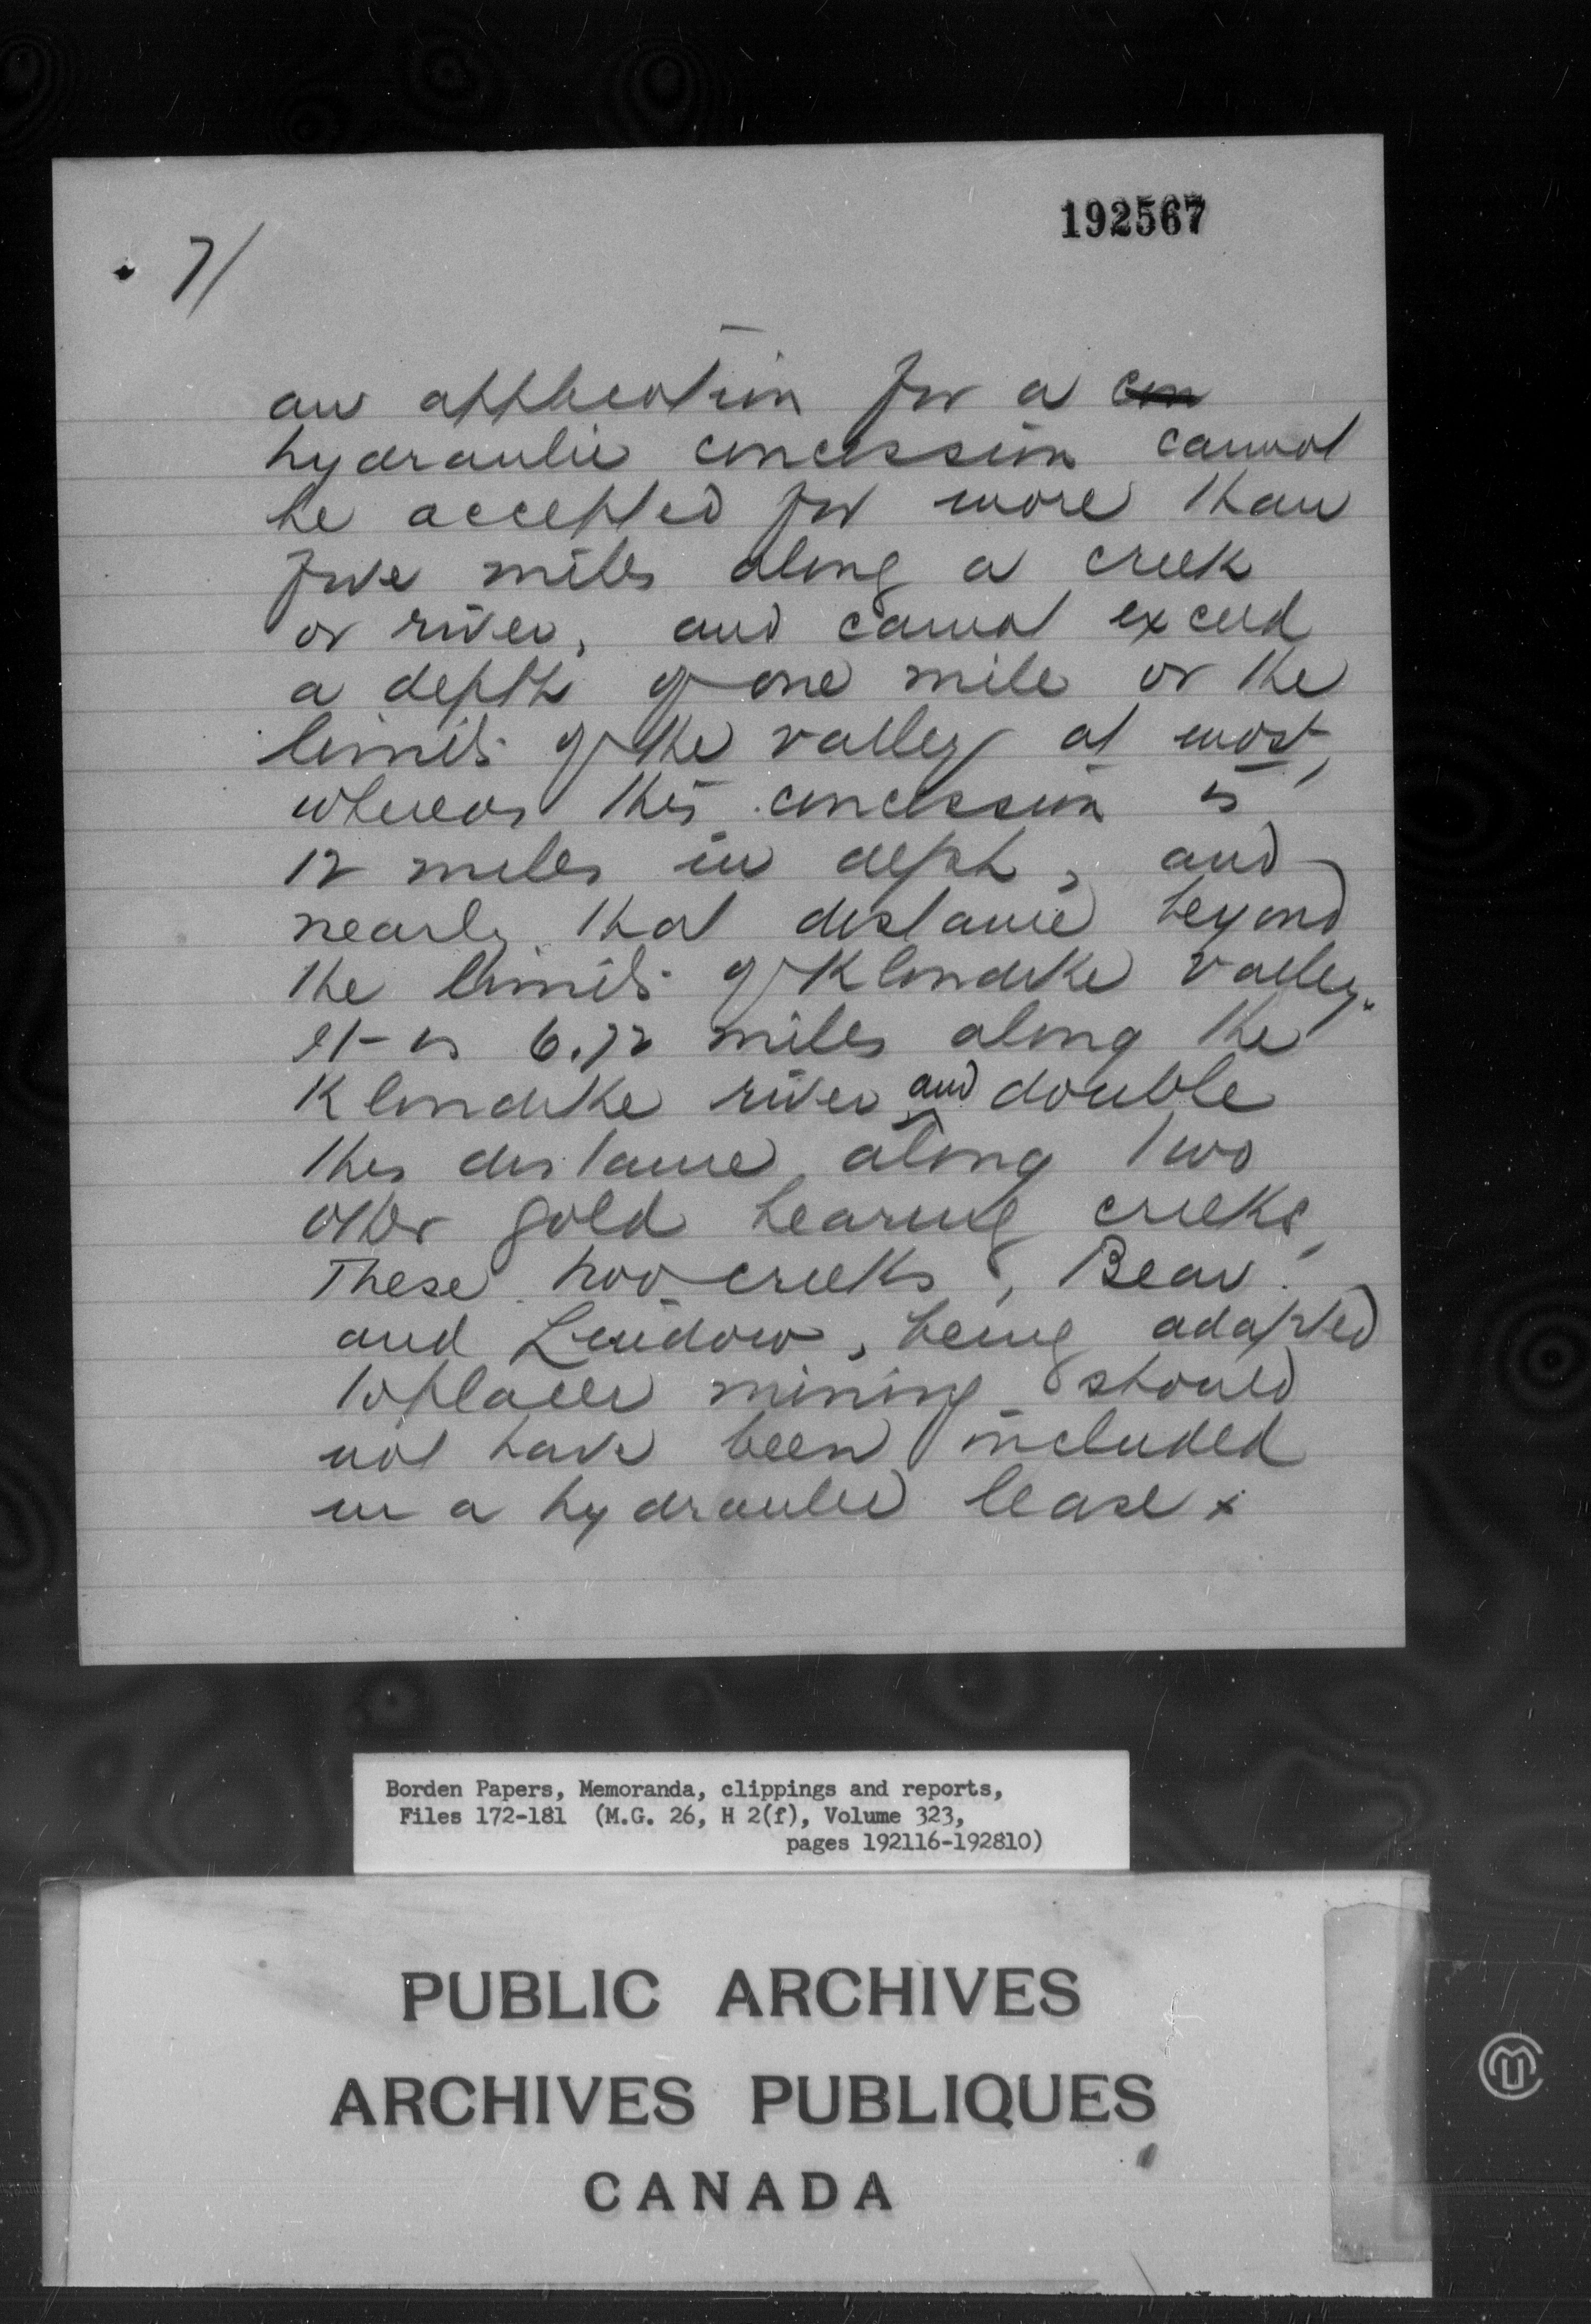 192567
7/
an application for a con
hydraulic concession cannot
be accepted for more than
five miles along a creek
or river, and cannot exceed
a depth of one mile or the
limits of the valley at most,
whereas this concession is
12 miles in depth, and
nearly that distance beyond
the limits of Klondike Valley.
It is 6.72 miles along the
Klondike river and double
this distance along two
other gold bearing creeks,
These two creeks, Bear
and Lindow, being adapted
to placer mining should
not have been included
in a hydraulic lease x
Borden Papers, Memoranda, clippings and reports,
Files 172-181 (M.G. 26, H 2(f), Volume 323,
pages 192116-192810)
PUBLIC ARCHIVES
ARCHIVES PUBLIQUES
CANADA